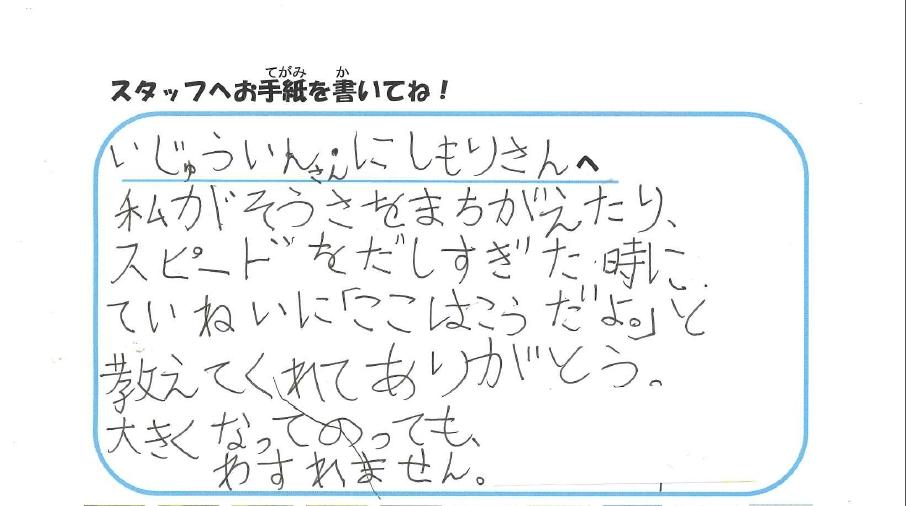 てがみ か
スタッフへお手紙を書いてね！
いじゅういんさん・にしもりさんへ
私がそうさをまちがえたり、
スピードをだしすぎた時に、
ていねいに「ここはこうだよ。」と
教えてくれてありがとう。
大きくなってのっても、
わすれません。